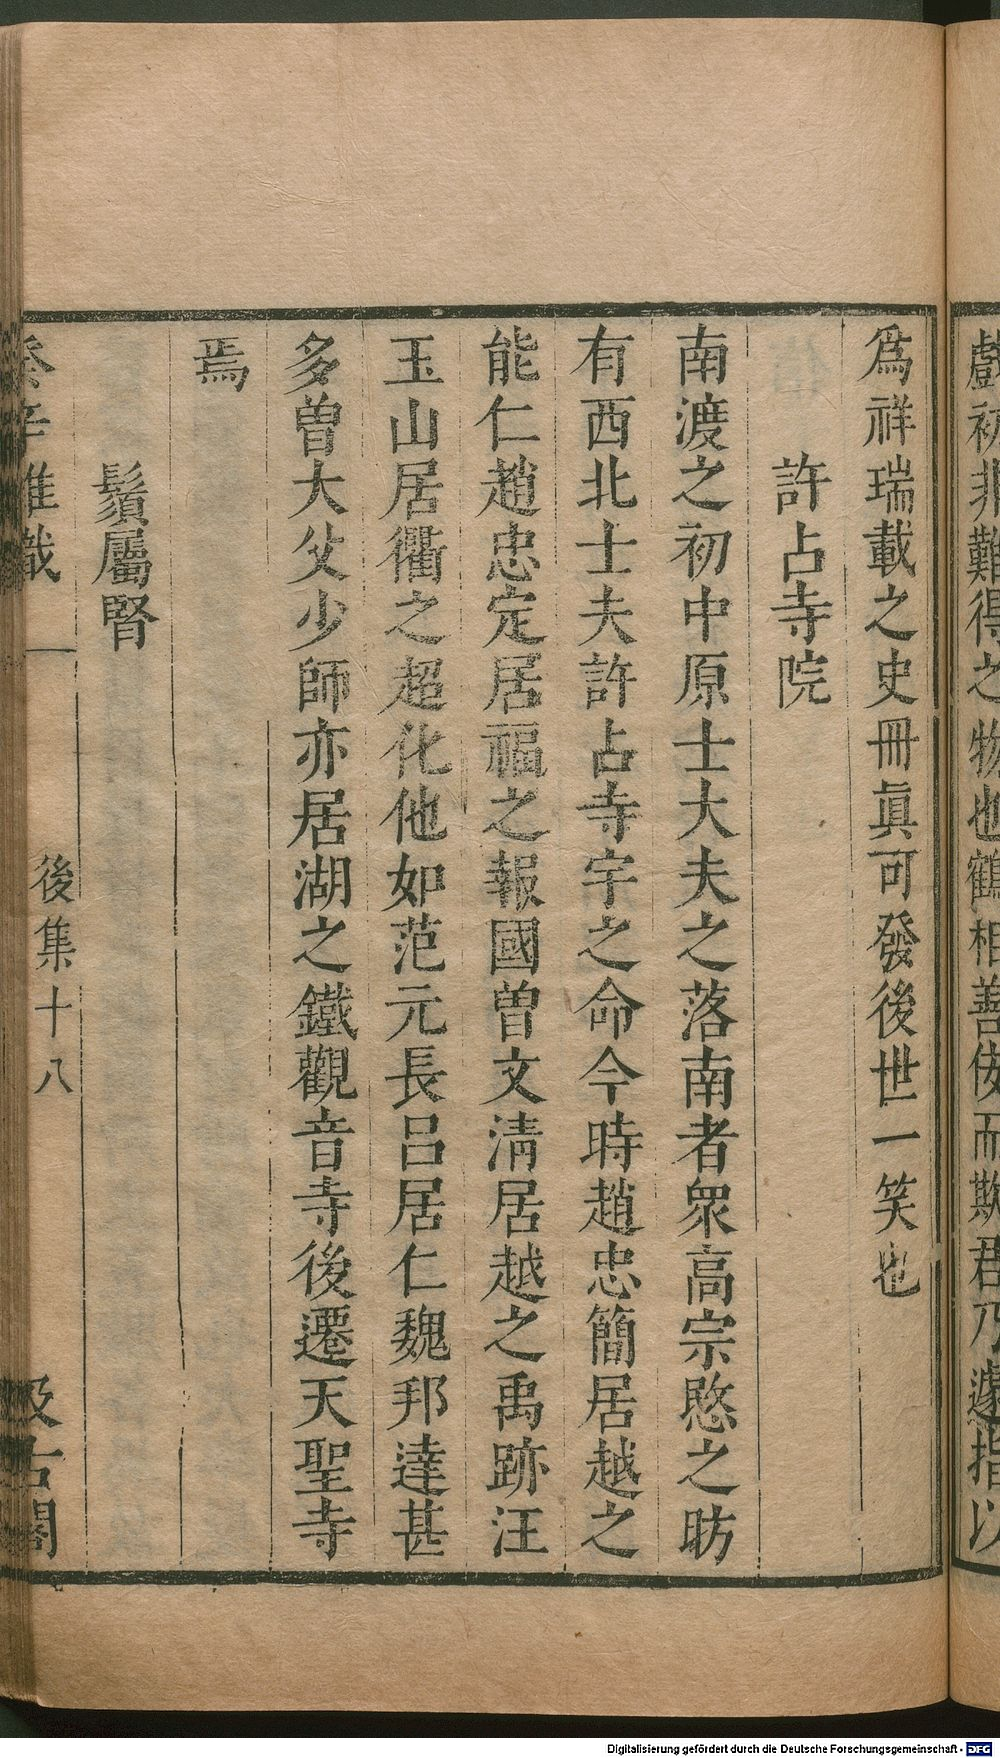 戲初非難得之物也鶴相善佞而欺君乃遽指以
爲祥瑞載之史冊眞可發後世一笑也
許占寺院
南渡之初中原士大夫之落南者衆高宗愍之昉
有西北士夫許占寺宇之命今時趙忠簡居越之
能仁趙忠定居福之報國曾文淸居越之禹跡汪
玉山居衢之超化他如范元長呂居仁魏邦達甚
多曾大父少師亦居湖之鐵觀音寺後遷天聖寺
焉
鬚屬腎
癸辛雜識
後集十八
汲古閣
Digitalisierung gefördert durch die Deutsche Forschungsgemeinschaft - DFG